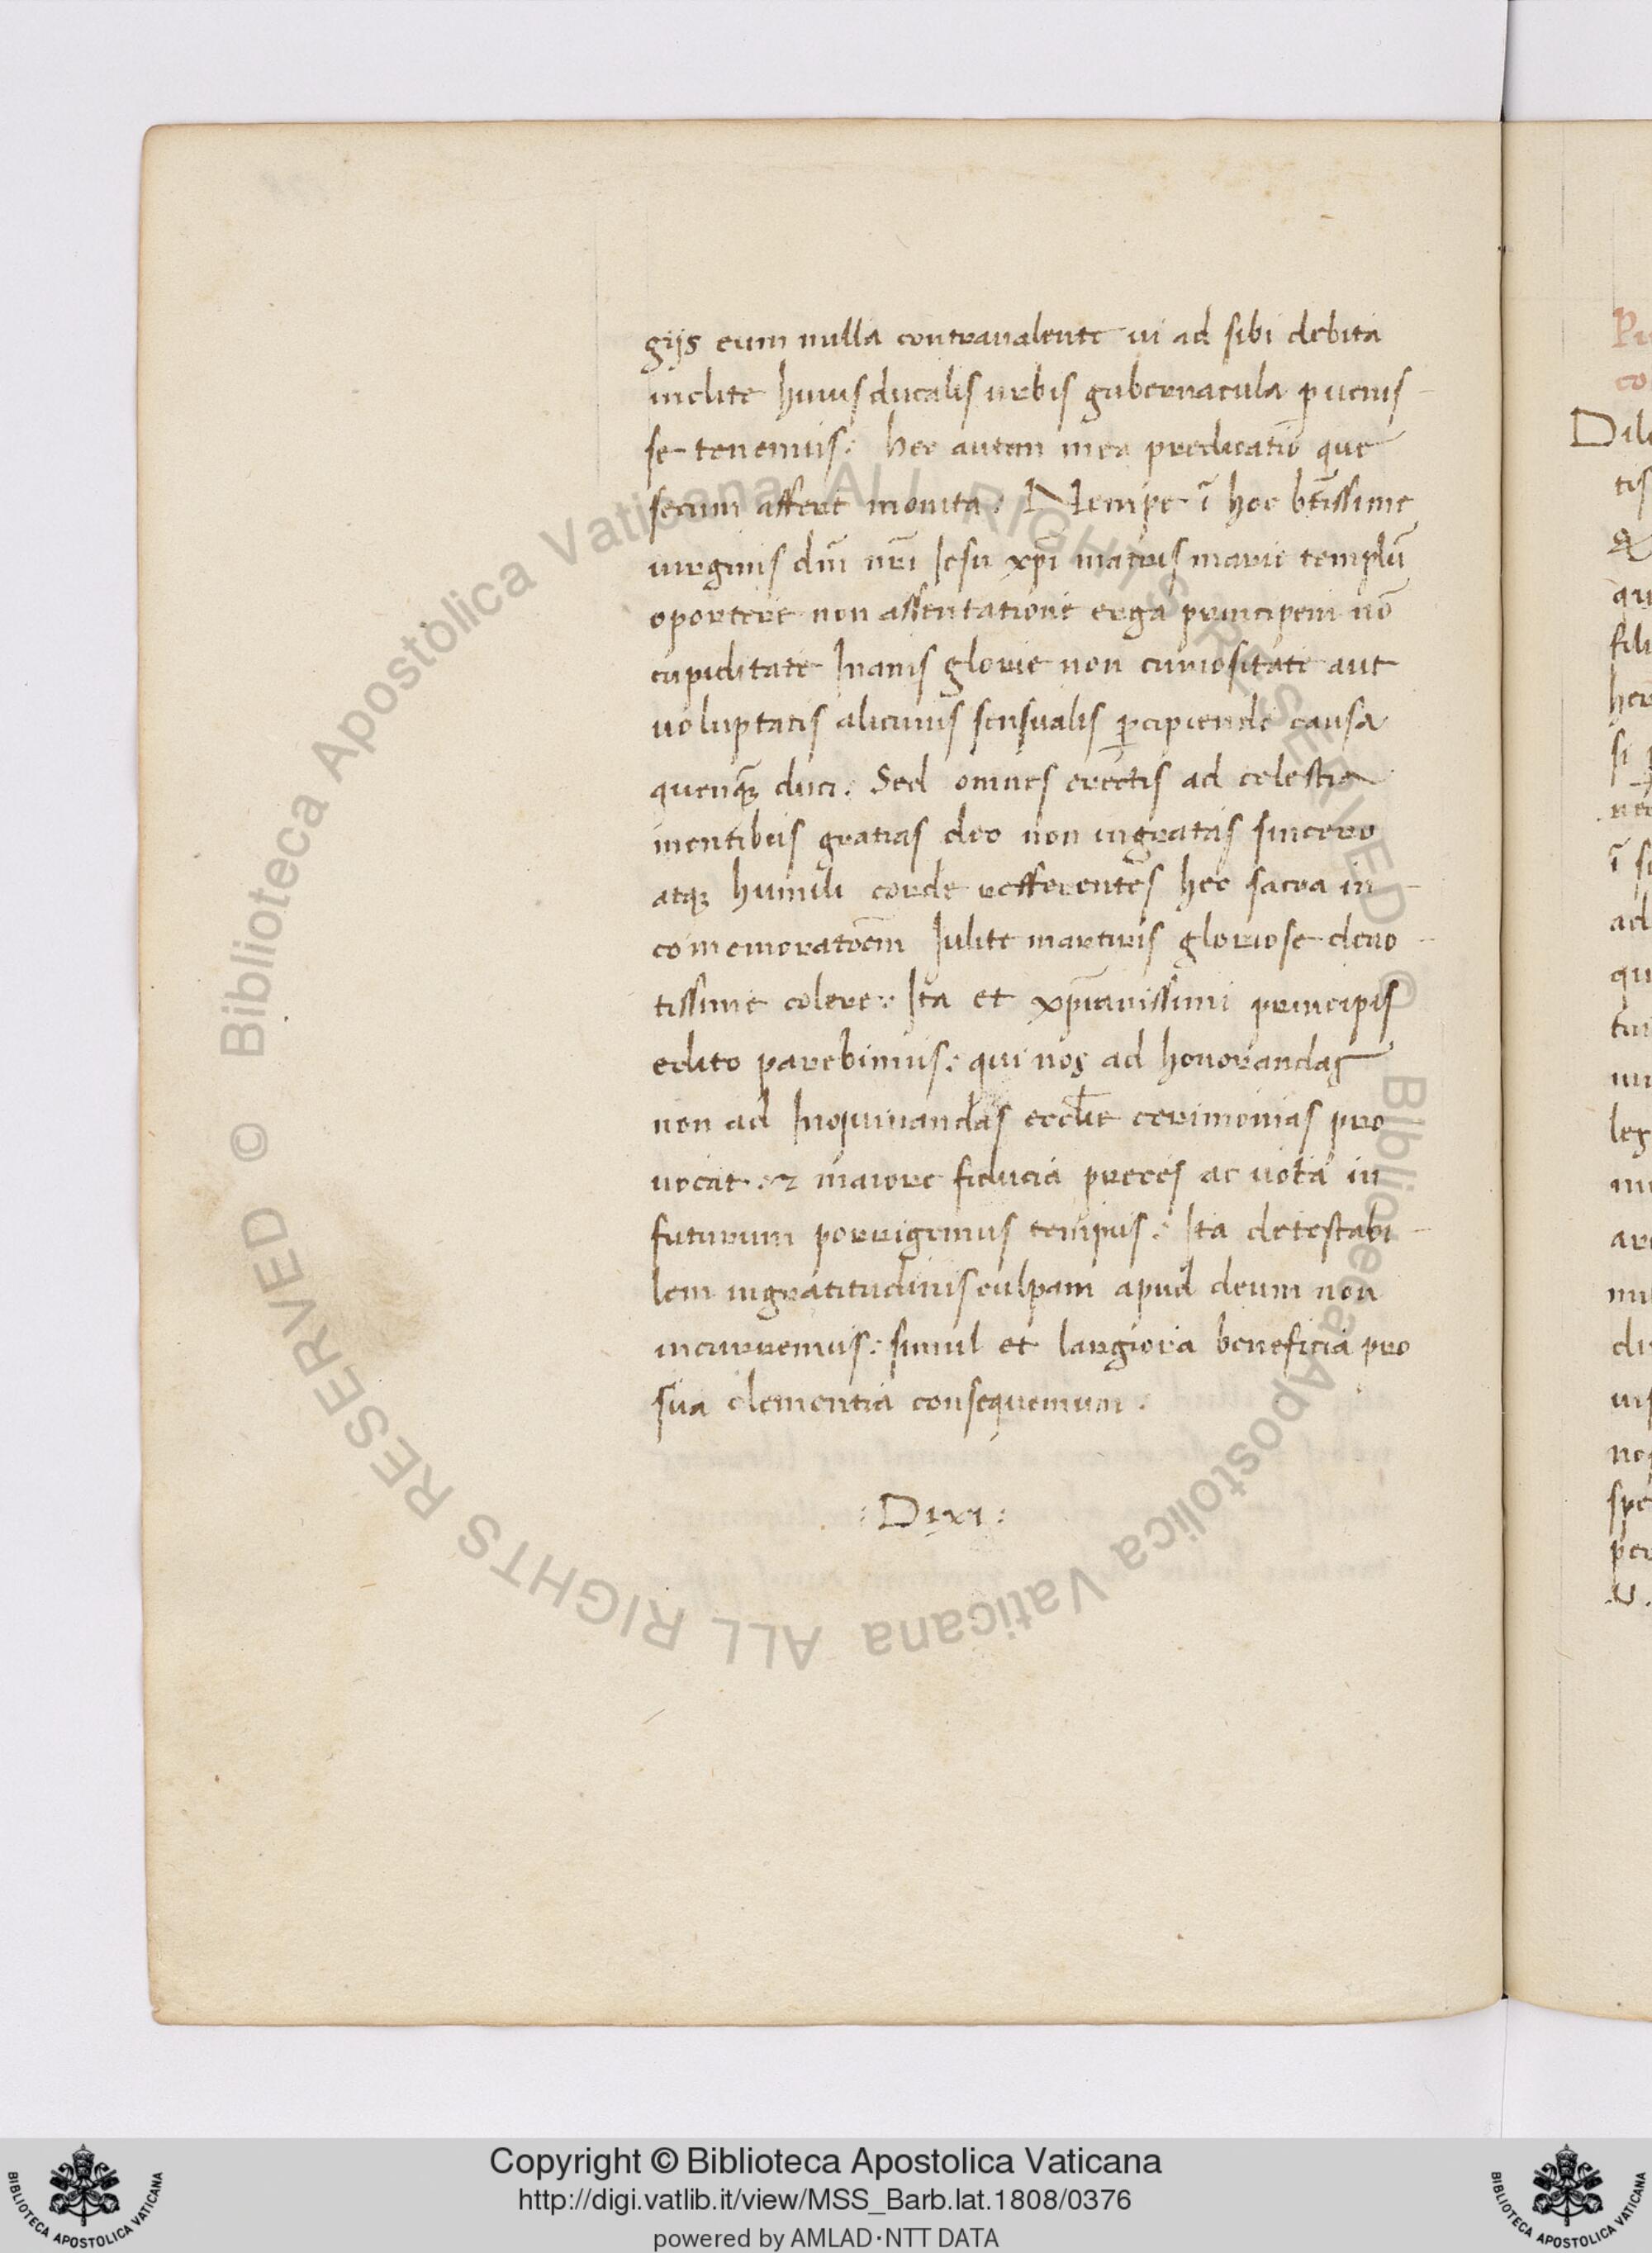 gijs eum nulla contravalente ui ad sibi debita
inclite huius ducalis urbis gubernacula p̱uenis-
se tenemus: hec autem mea predicatio que
secum affert monita: Nempe ī hoc btissime
uirginis dnī nrī Iesu xpī matris marie templū
oportere non assentatione erga principem nō
cupiditate Inanis glorie non curiositate aut
uoluptatis alicuius sensualis p̱cipiende causa
quenqꝫ duci: Sed omnes erectis ad celestia
mentibus gratias deo non ingratas sincero
atqꝫ humili corde refferentes hec sacra in-
cōmemoratōem Iulite martiris gloriose deuo-
tissime colere: Ita et xpīanissimi principis
edito parebimus: qui nos ad honorandas
non ad Inquinandas eccłie cerimonias pro
uocat: ⁊ maiore fiducia preces ac uota in
futurum porrigemus tempus: Ita detestabi-
lem ingratitudinis culpam apud deum non
incurremus: simul et largiora beneficia pro
sua clementia consequemur:
:Dixi:
Dil
tis
qu
fili
her
si
ī
ad
qu
leg
di
spe
U.
© Biblioteca Apostolica Vaticana ALL RIGHTS RESERVED © Biblioteca Apostolica Vaticana ALL RIGHTS RESERVED
BIBLIOTECA APOSTOLICA VATICANA
Copyright © Biblioteca Apostolica Vaticana
http://digi.vatlib.it/view/MSS_Barb.lat.1808/0376
powered by AMLAD·NTT DATA
BIBLIOTECA APOSTOLICA VATICANA